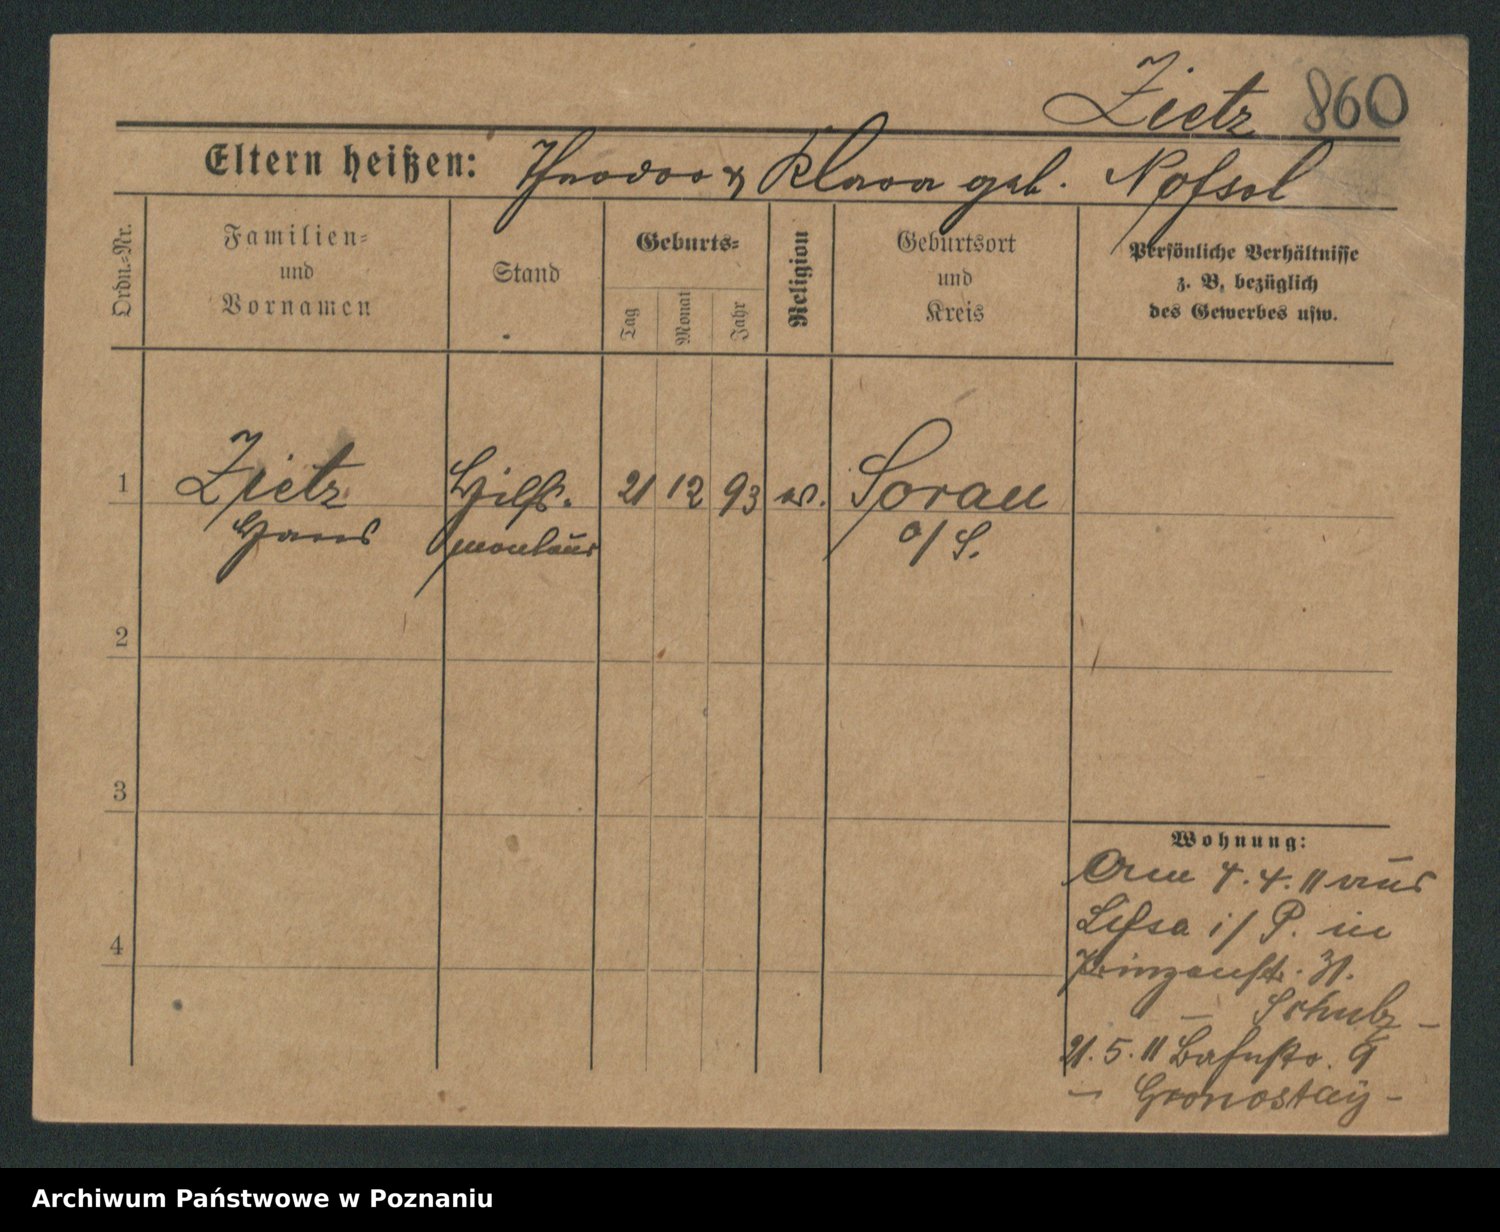 Zietz 860
Eltern heißen: Theodor & Klara geb.
Ordn.-Nr.
Familien-
und
Vornamen
Stand
Geburts-
Tag
Monat
Jahr
Religion
Geburtsort
und
Kreis
Persönliche Verhältnisse
z. B. bezüglich
des Gewerbes usw.
1 Zietz Hilfs- 21 12 93 ev. Sorau
Hans monteur o/S.
2
3
4
Wohnung:
Am 4.4.11 aus
Lissa i/P. in
Prinzenstr. 31.
– Schulz –
21.5.11 Bahnstr. 9
– Gronostay –
Archiwum Państwowe w Poznaniu